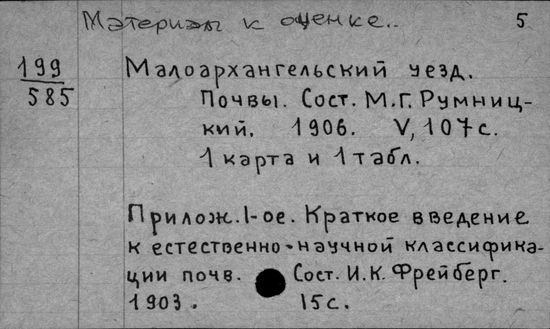 Материалы к оценке.. 5
199
585
Малоархангельский уезд.
Почвы. Сост. М.Г. Румниц-
кий. 1906. V, 107 с.
1 карта и 1 табл.
Прилож. I-ое. Краткое введение
к естественно-научной классифика-
ции почв. Сост. И.К. Фрейберг.
1903. 15 с.